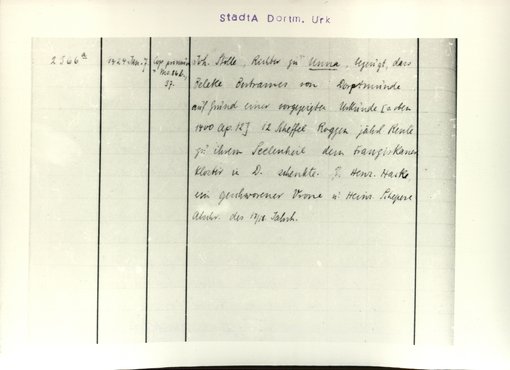 StadtA Dortm. Urk
2366a
1424 Jan. 7.
Joh. Stolle, Richter zu Unna, bezeugt, dass
Beleke Bertrames von Dorptmünde
auf Grund einer vorgezeigten Urkunde [a den
1400 Apr. 12] 12 Scheffel Roggen jährl. Rente
zu ihrem Seelenheil dem Franziskaner
kloster in D. schenkte. Z. Henr. Hacke
ein geschworener Vrone u. Heinr. Schepere
Abschr. des 17/18 Jahrh.